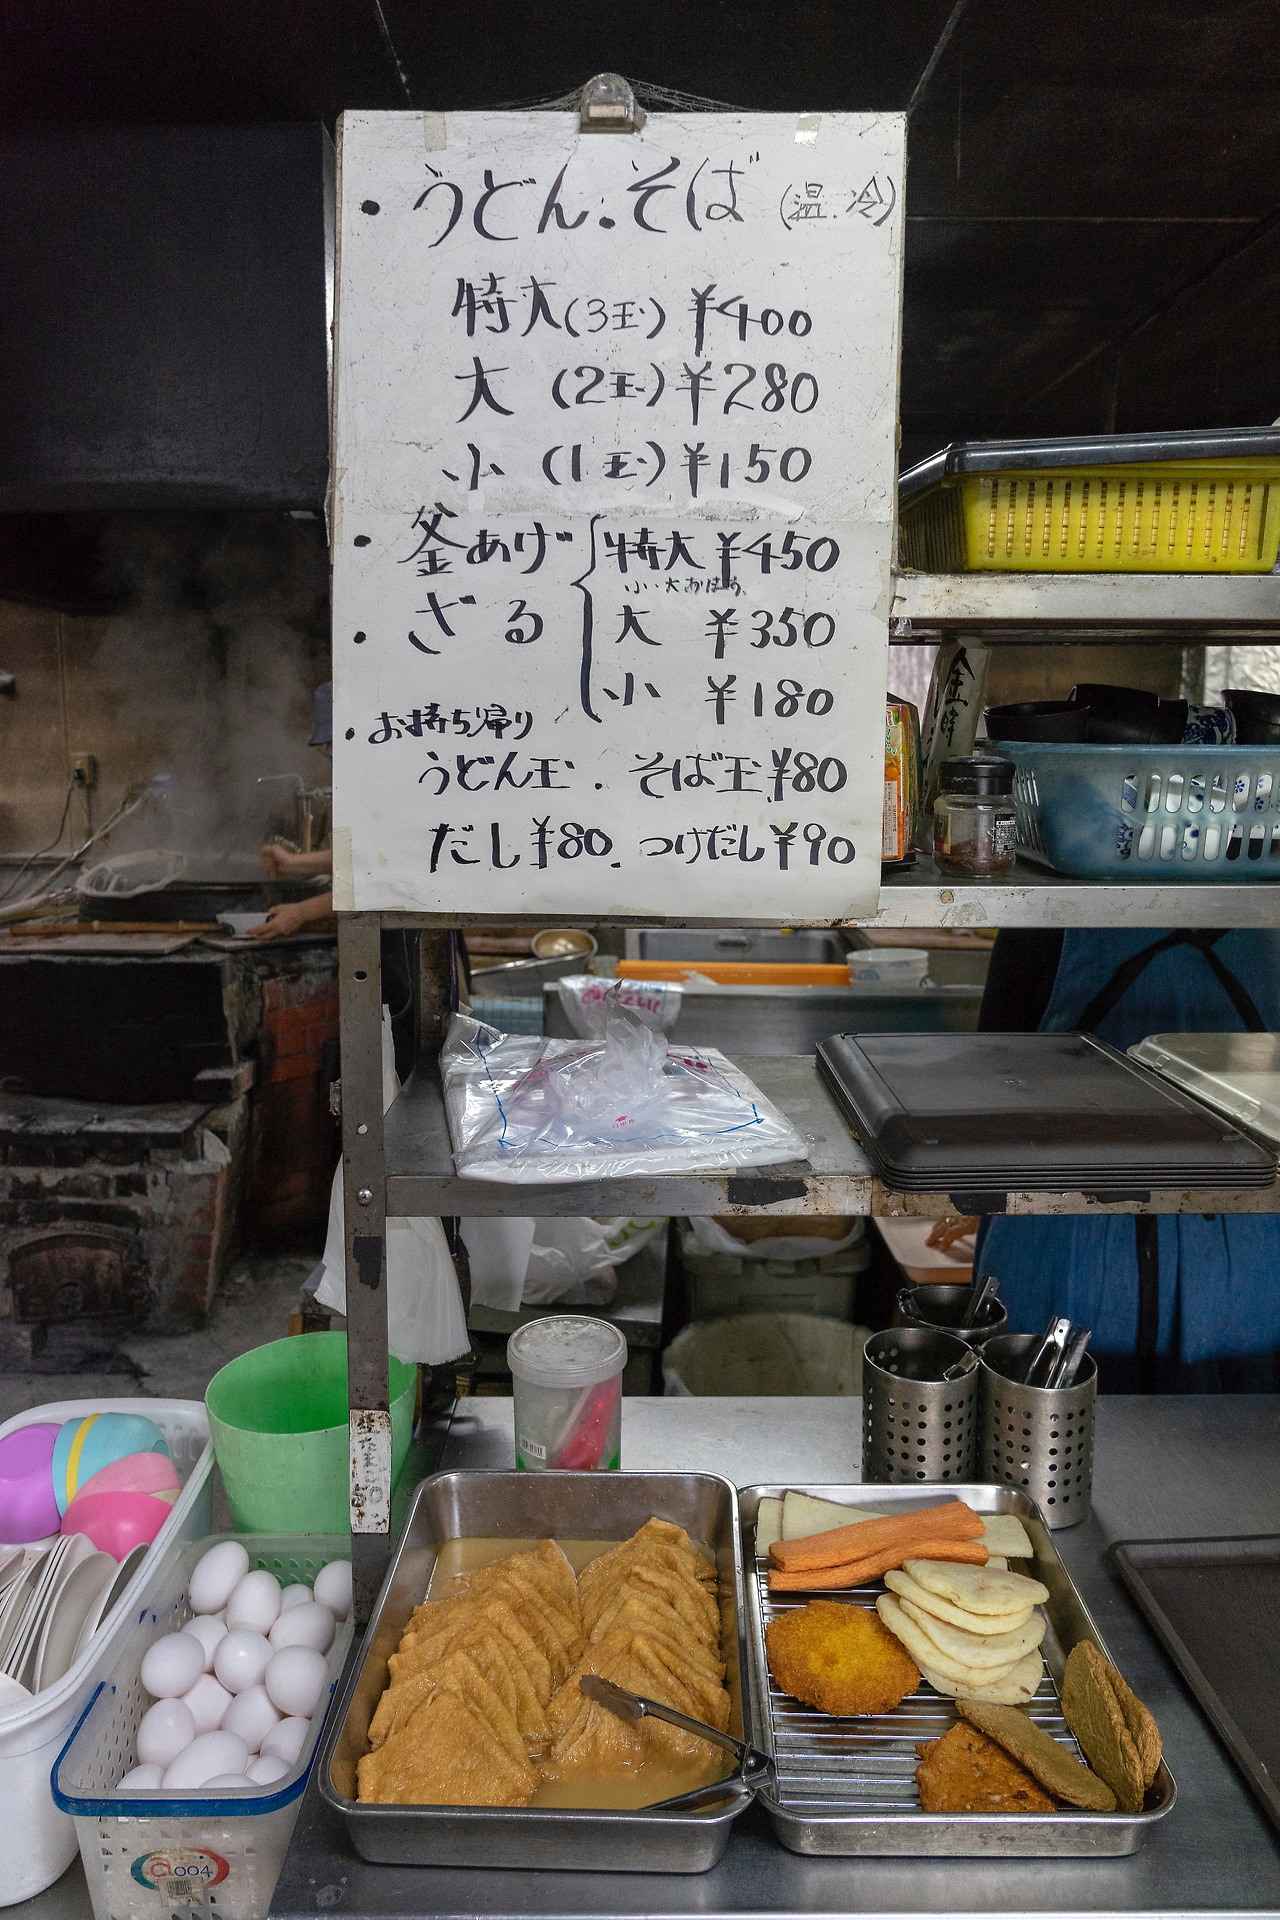 ・うどん・そば（温・冷）
特大（3玉）¥400
大（2玉）¥280
小（1玉）¥150
・釜あげ
・ざる
特大 ¥450
大 ¥350
小 ¥180
・お持ち帰り
うどん玉・そば玉¥80
だし¥80. つけだし¥90
生たまご 50
a004